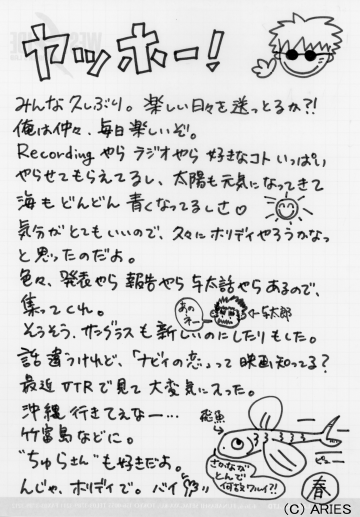 ヤッホー!
みんな久しぶり。楽しい日々を送っとるか?!
俺は仲々、毎日楽しいぞ。
Recordingやらラジオやら好きなコトいっぱい
やらせてもらえてるし、太陽も元気になってきて
海もどんどん青くなってるしさ♡
気分がとてもいいので、久々にホリデイやろうかなっ
と思ったのだよ。
色々、発表やら報告やら与太話やらあるので、
集ってくれ。
あのネー
←与太郎
そうそう、サングラスも新しいのにしたりもした。
話違うけれど、「ナビィの恋」って映画知ってる?
最近VTRで見て大変気に入った。
沖縄行きてえなー…
竹富島などに。
"ちゅらさん"も好きだよ。
んじゃ、ホリデイで。バイ
飛魚
さかなが
とんで
何が悪ワルイ?!
ピュー
春
(C) ARIES